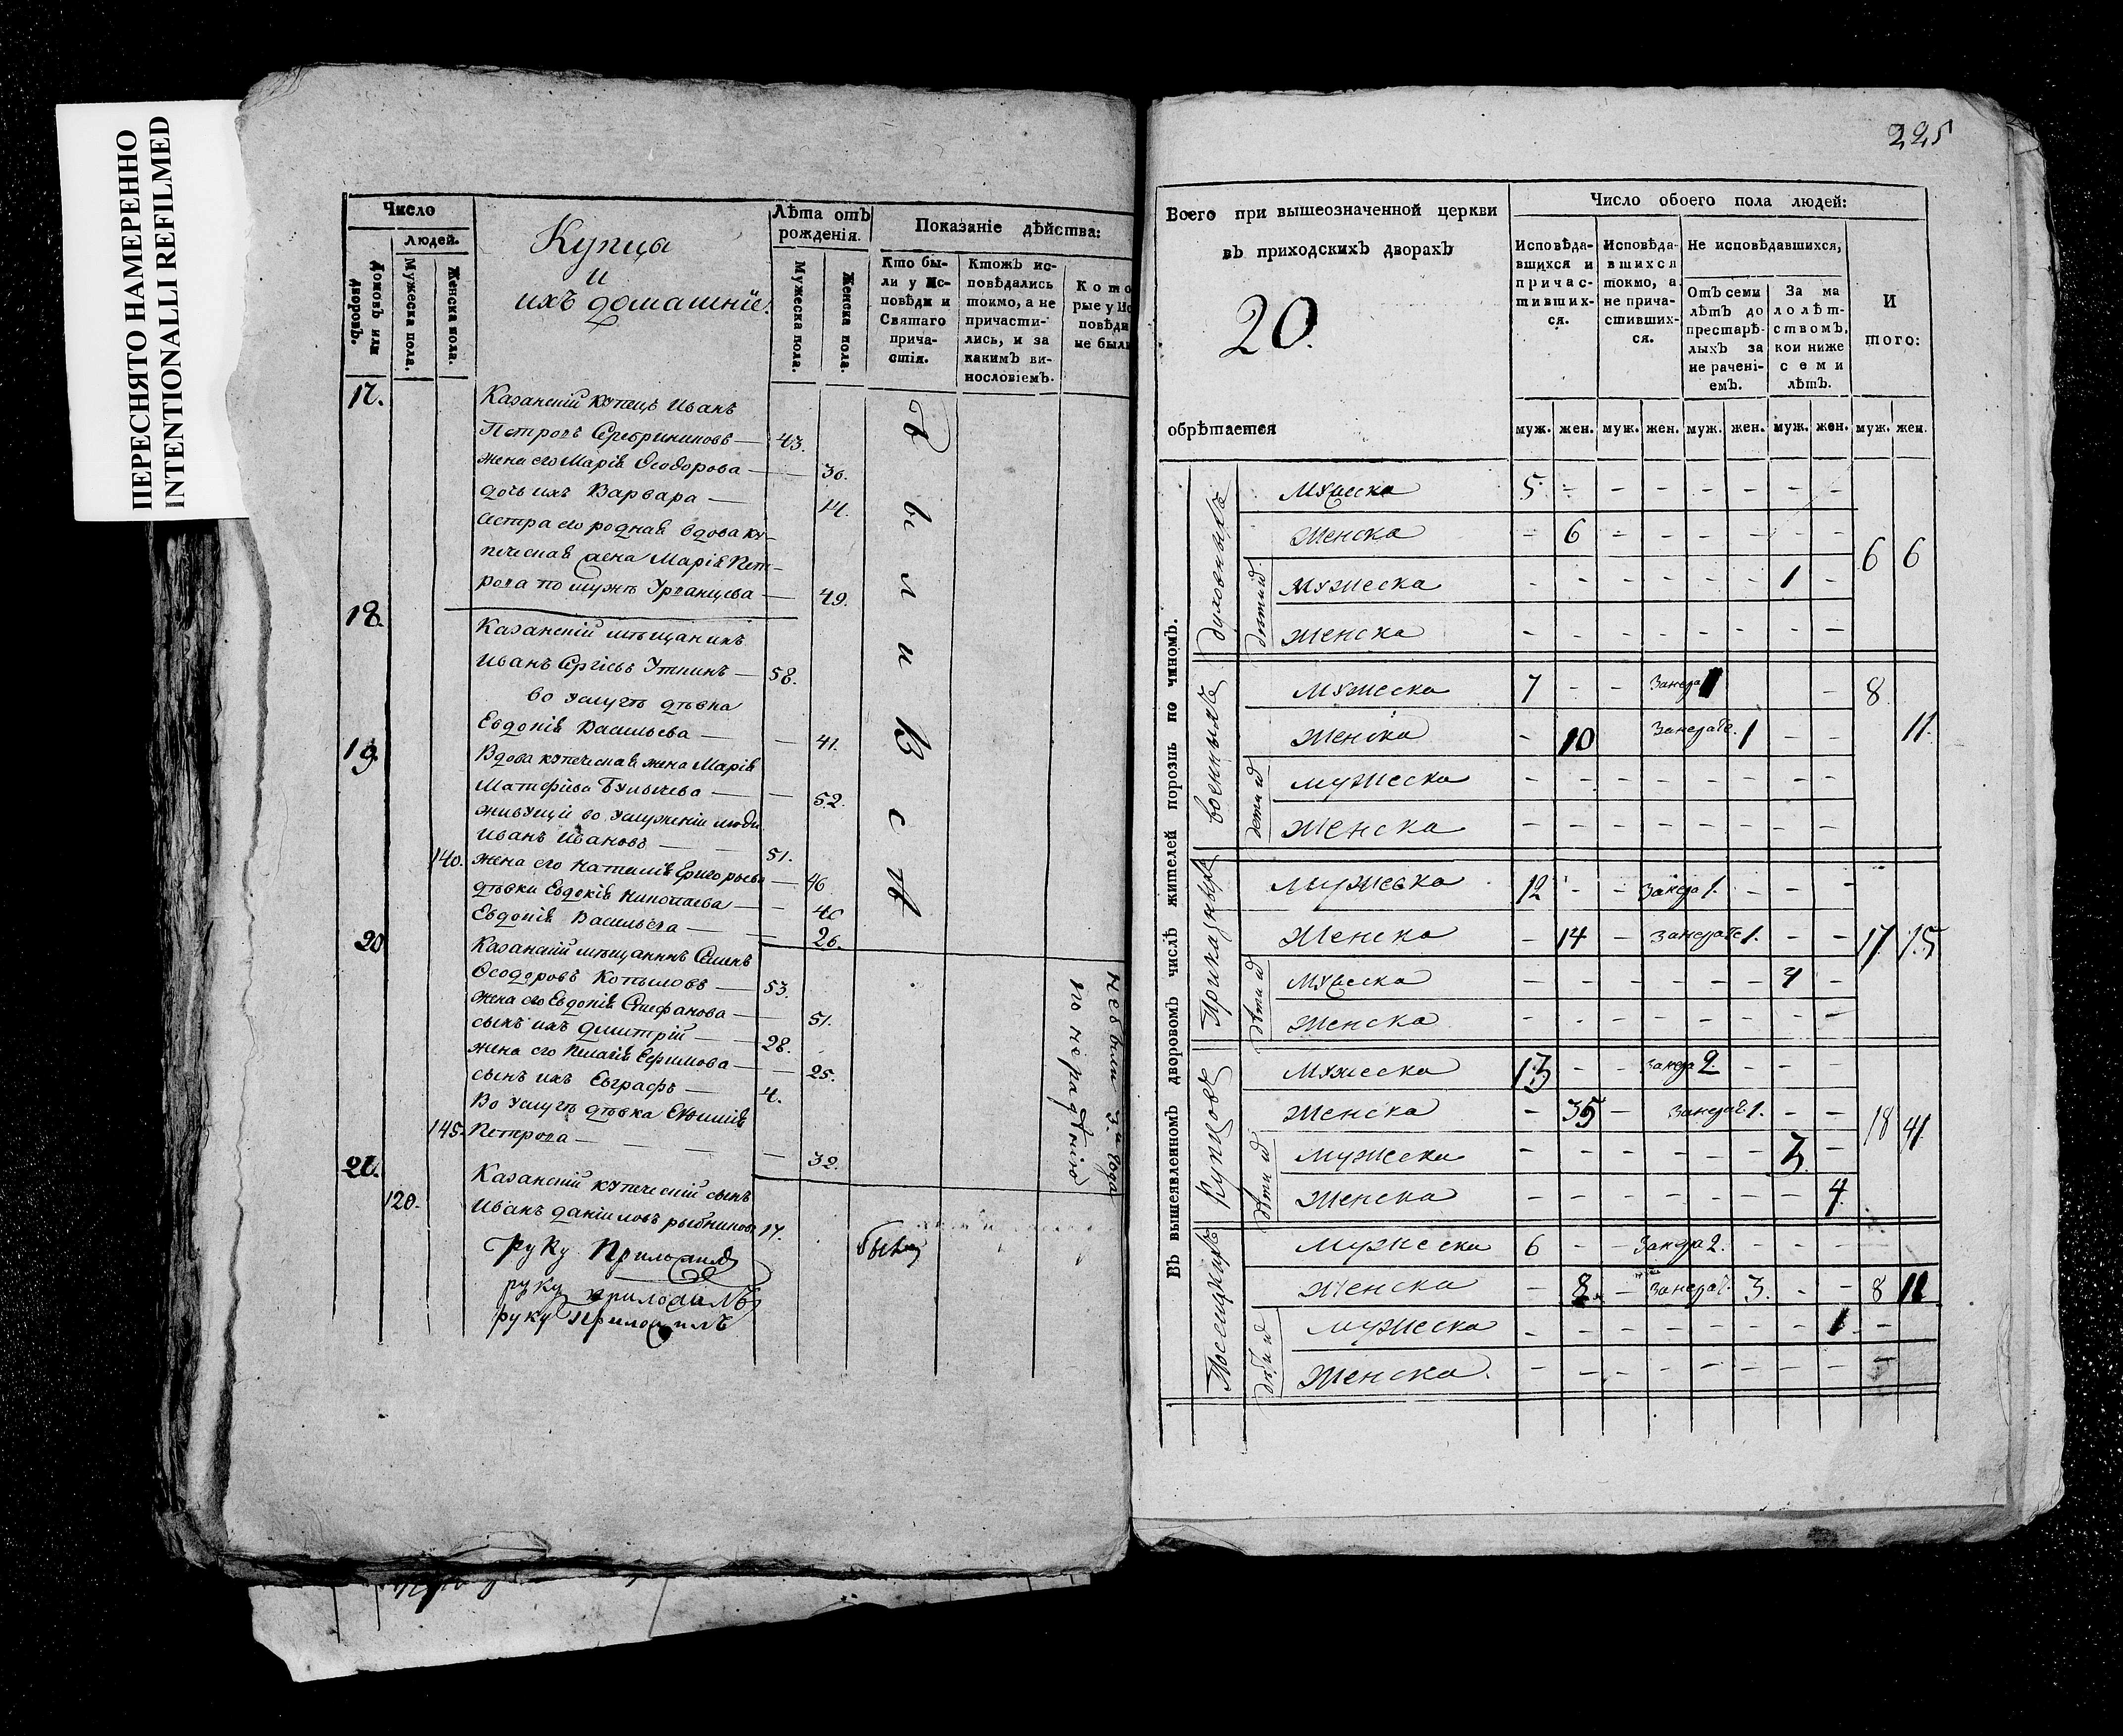 ПЕРЕСНЯТО НАМЕРЕННО
INTENTIONALLI REFILMED
Число
людей.
Домовъ или дворовъ.
Мужеска пола.
Женска пола.
Купцы
и
ихъ домашніе.
Лѣта отъ рожденія.
Мужеска пола.
Женска пола.
Показаніе дѣйства:
Кто были у Исповѣди и Святаго причастія.
Ктожъ исповѣдались токмо, а не причастились, и за какимъ винословіемъ.
Кото
рые у Ис
повѣди
не были
17.
Казанскій купецъ Иванъ
Петровъ Серебрениковъ — 43.
жена его Марія Ѳеодорова — 30.
дочь ихъ Варвара — 14.
сестра его родная вдова ку-
печеская жена Марія Пет-
рова по мужѣ Урванцева — 49.
18.
Казанскій мѣщанинъ
Иванъ Сергіевъ Уткинъ — 58.
во услугѣ дѣвка
Евдокія Васильева — 41.
19.
Вдова купеческая жена Марія
Матѳеева — 52.
живущіе во услуженіи люди
Иванъ Ивановъ — 51.
140. жена его Наталія Григорьева — 46
дѣвки Евдокія Николаева — 40
Евдокія Васильева — 26.
были всѣ
20
Казанскій мѣщанинъ Семенъ
Ѳеодоровъ Копыловъ — 53.
жена его Евдокія Стефанова — 51.
сынъ ихъ Димитрій — 28.
жена его Пелагія Ефимова — 25.
сынъ ихъ Евграфъ — 4.
Во услугѣ дѣвка
145. Петрова — 32.
не были 3и года
по нерадѣнію
21.
Казанскій купеческій сынъ
120. Иванъ Даніиловъ Рыбниковъ 17.
былъ
руку приложилъ
руку приложилъ
руку приложилъ
225
Всего при вышеозначенной церкви
въ приходскихъ дворахъ
20.
обрѣтается
Число обоего пола людей:
Исповѣдавшихся и причастившихся.
Исповѣдавшихся токмо, а не причастившихся.
Не исповѣдавшихся,
Отъ семи лѣтъ до престарѣлыхъ за нерачениемъ.
За малолѣтствомъ, кои ниже семи лѣтъ.
И того:
муж. жен. муж. жен. муж. жен. муж. жен. муж. жен.
Въ вышеявленномъ дворовомъ числѣ жителей порознь по чиномъ.
духовныхъ
Мужеска 5. - - - - - - -
Женска - 6 - - - - - - 6 6
дѣтий
Мужеска - - - - - - 1 -
Женска - - - - - - - -
военныхъ
Мужеска 7 - - 1 - 8
Женска - 10 1 - - 11.
дѣтий
Мужеска - - - - - - - -
Женска - - - - - - - -
Приказныхъ
Мужеска 12 - - 1. - - -
Женска - 14 - 1. - - 17 15
дѣтий
Мужеска - - - - - - 4 -
Женска - - - - - - - -
Купцовъ
Мужеска 13 - - 2. - - -
Женска - 35 - 1. - - 18 41.
дѣтий
Мужеска - - - - - - 3. -
Женска - - - - - - - 4.
Посацкихъ
Мужеска 6 - - 2. - - - -
Женска - 8. - 3. - - 8 11
дѣтий
Мужеска - - - - - - - 1. -
Женска. - - - - - - - -